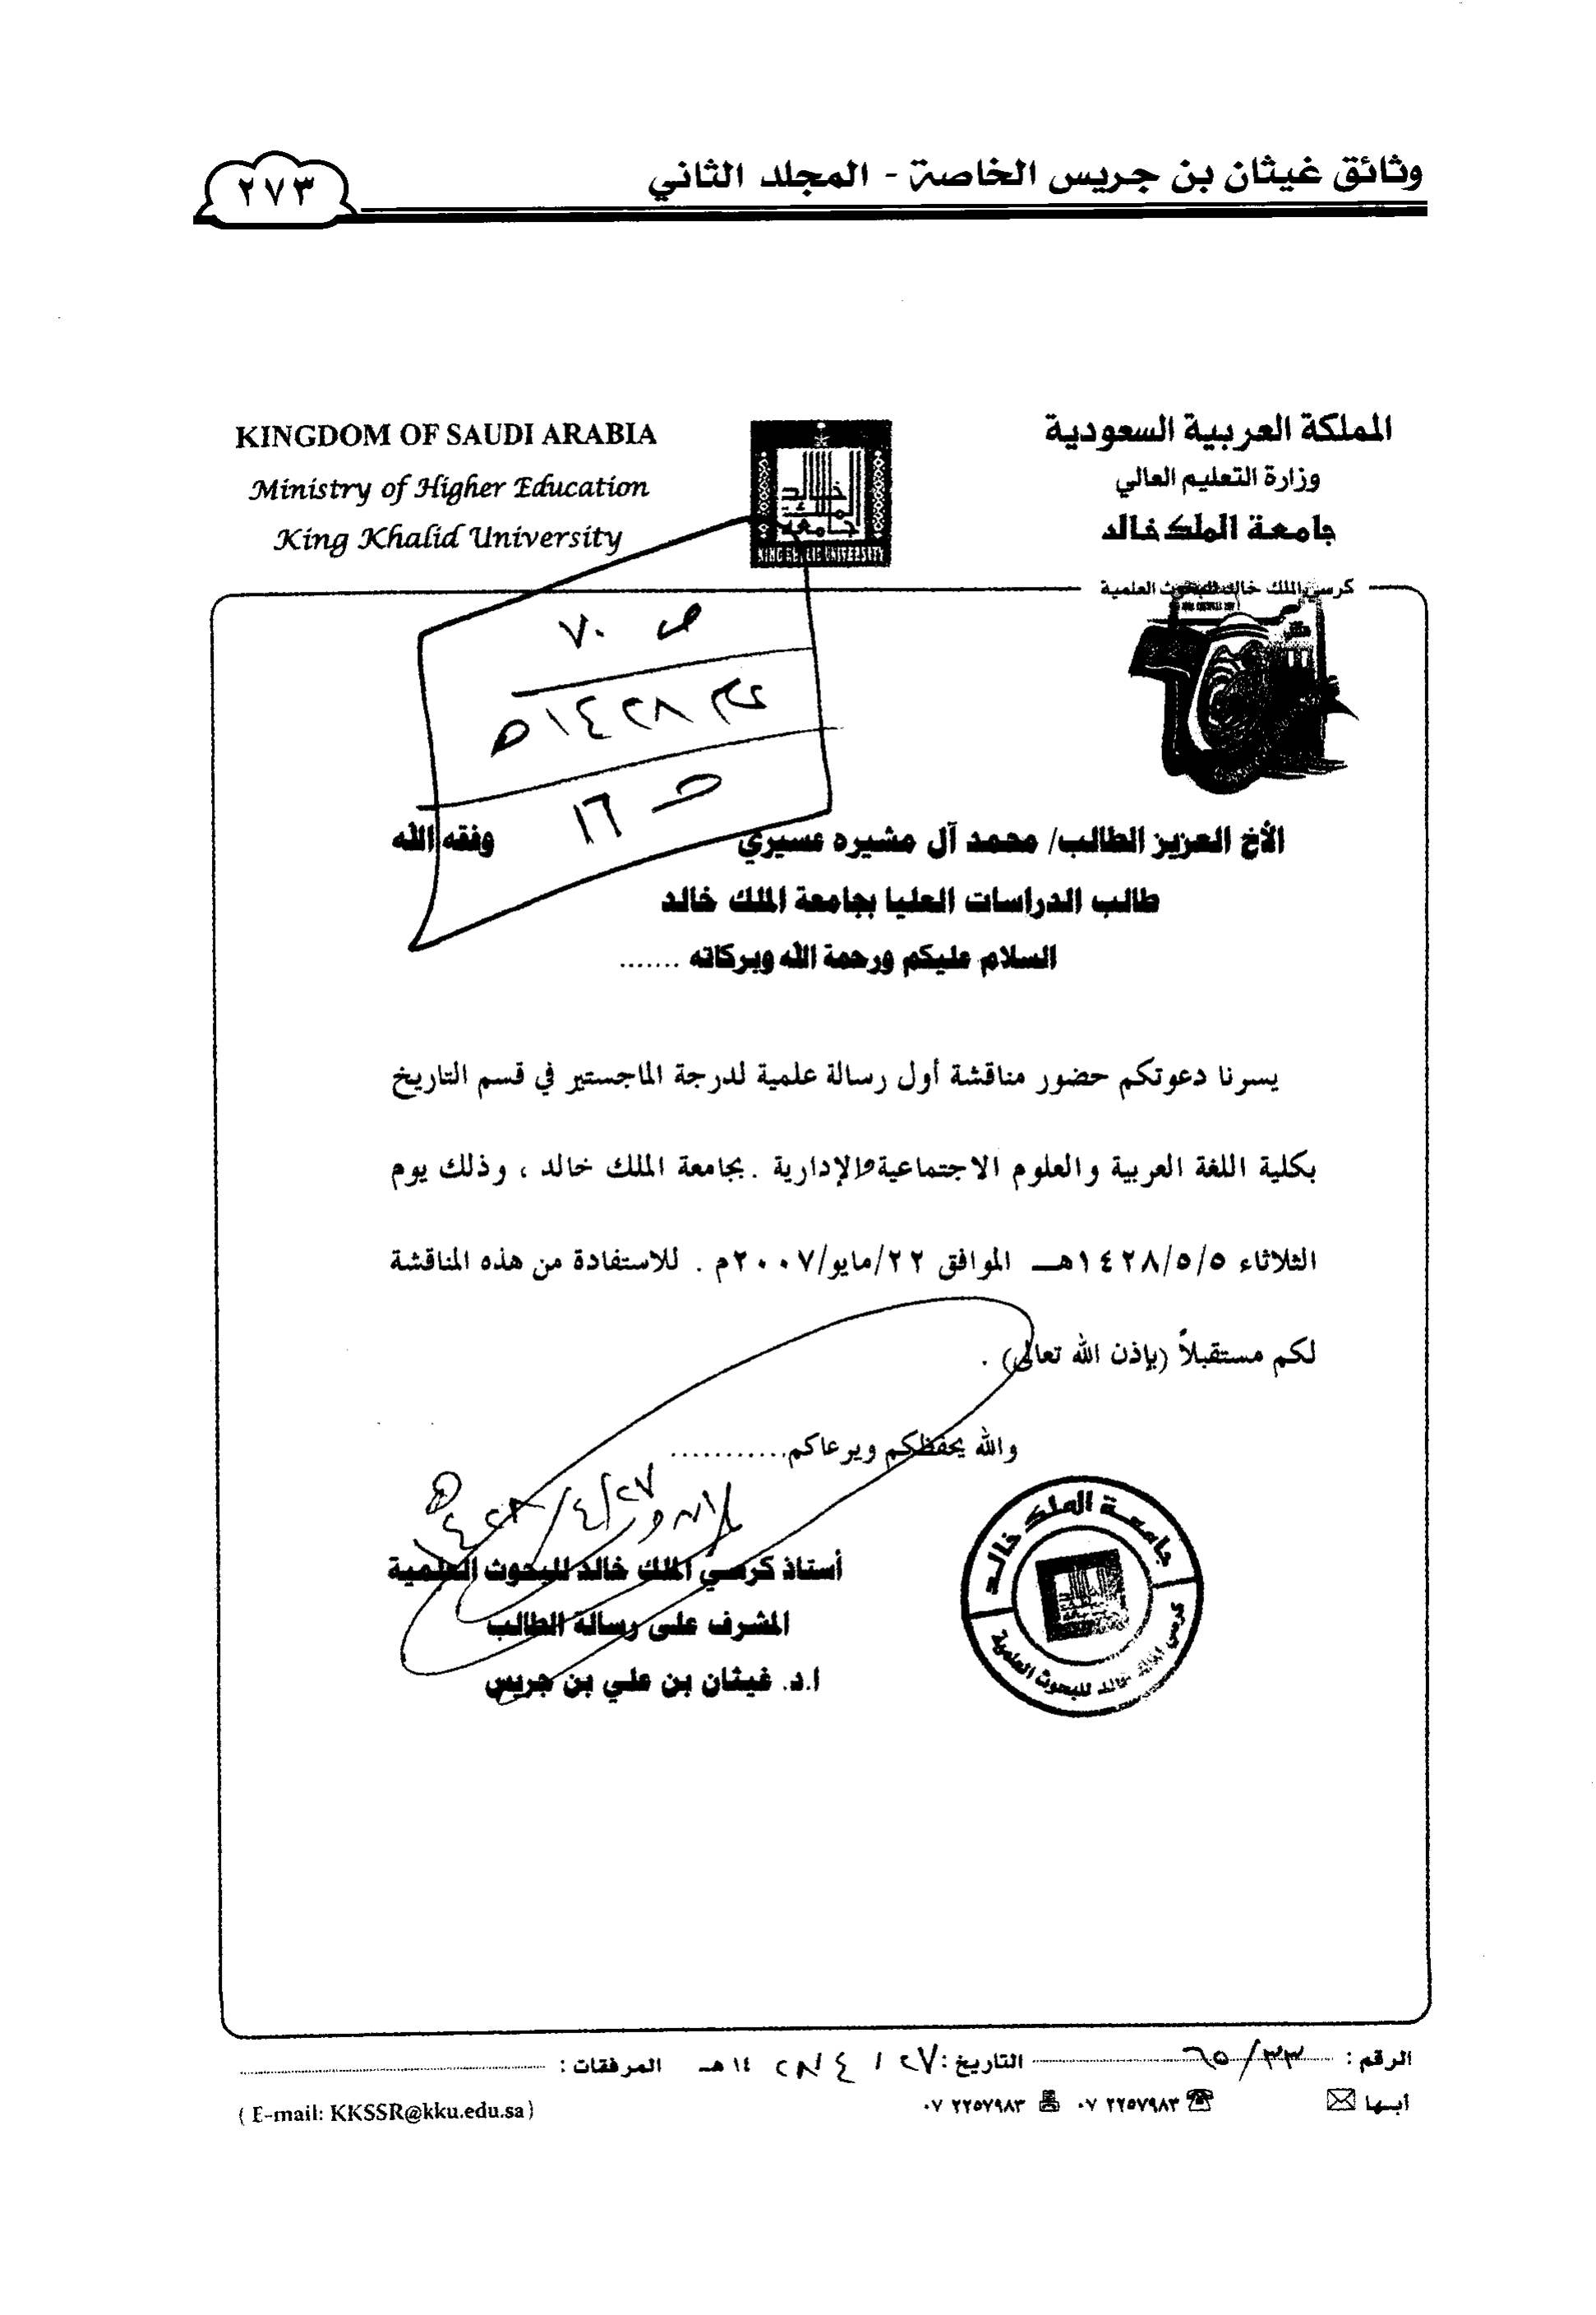 وثائق غيثان بن جريس الخاصة - المجلد الثاني
٢٧٣
المملكة العربية السعودية
وزارة التعليم العالي
جامعة الملك خالد
KINGDOM OF SAUDI ARABIA
Ministry of Higher Education
King Khalid University
كرسي الملك خالد للبحوث العلمية
ص ٧٠
عام ١٤٢٨ه
١٦
الأخ العزيز الطالب/ محمد آل مشيره عسيري وفقه الله
طالب الدراسات العليا بجامعة الملك خالد
السلام عليكم ورحمة الله وبركاته .......
يسرنا دعوتكم حضور مناقشة أول رسالة علمية لدرجة الماجستير في قسم التاريخ
بكلية اللغة العربية والعلوم الاجتماعية والإدارية . بجامعة الملك خالد ، وذلك يوم
الثلاثاء ١٤٢٨/٥/٥هـ الموافق ٢٢/مايو/٢٠٠٧م . للاستفادة من هذه المناقشة
لكم مستقبلاً (بإذن الله تعالى) .
والله يحفظكم ويرعاكم...........
١٤٢٨/٤/٢٧ه
أستاذ كرسي الملك خالد للبحوث العلمية
المشرف على رسالة الطالب
ا.د. غيثان بن علي بن جريس
جامعة الملك خالد
كرسي الملك خالد للبحوث العلمية
الرقم : ٦٥/٣٣ التاريخ : ٢٧ / ٤ / ١٤٢٨ هـ المرفقات :
أبها ٠٧ ٢٢٥٧٩٨٣ ٠٧ ٢٢٥٧٩٨٣
( E-mail: KKSSR@kku.edu.sa )